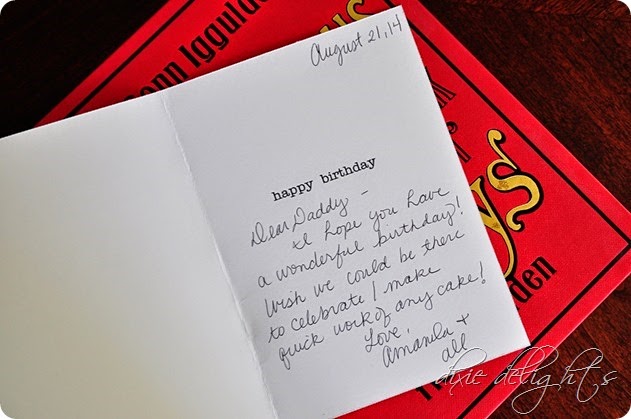 August 21, 14
happy birthday
Dear Daddy -
I hope you have
a wonderful birthday!
Wish we could be there
to celebrate / make
quick work of any cake!
Love,
Amanda +
all
onn Iggulde
ys
den
dixie delights